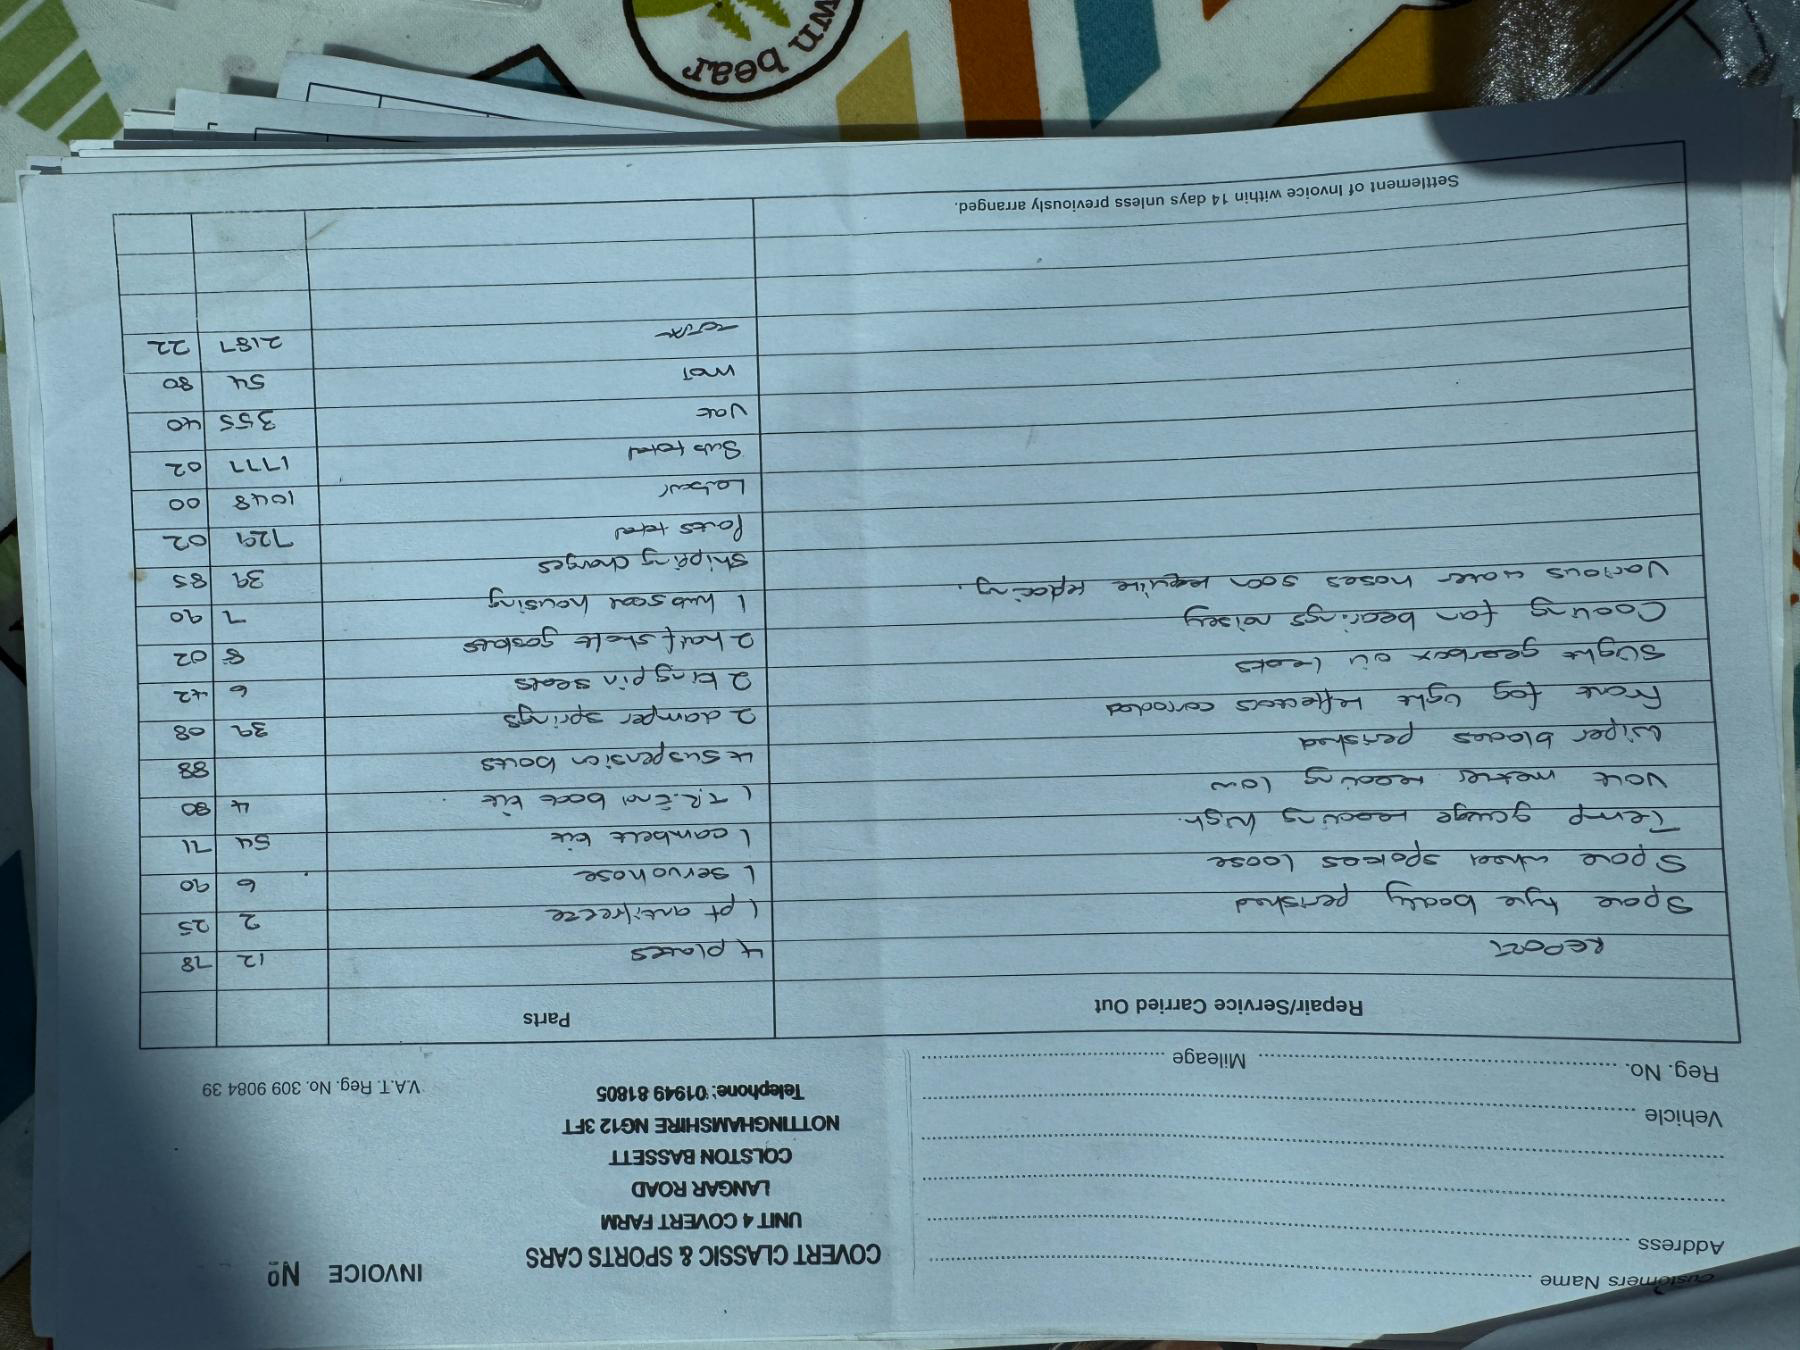 INVOICE Nº
Customers Name
Address
Vehicle
Reg. No. Mileage
COVERT CLASSIC & SPORTS CARS
UNIT 4 COVERT FARM
LANGAR ROAD
COLSTON BASSETT
NOTTINGHAMSHIRE NG12 3FT
Telephone: 01949 81805
V.A.T. Reg. No. 309 9084 39
Repair/Service Carried Out
REPORT
Spare tyre badly perished
Spare wheel spokes loose
Temp gauge reading high.
Volt metre reading low
Wiper blades perished
Front fog light reflectors corroded
Slight gearbox oil leaks
Cooling fan bearings noisey
Various water hoses soon require replacing.
Parts
4 plates 12 78
1 pt antifreeze 2 25
1 servo hose 6 90
1 cambelt kit 54 71
1 T.R. End boot kit 4 80
4 suspension bolts 88
2 damper springs 39 08
2 king pin seals 6 42
2 half shaft gaskets 8 02
1 hub seal housing 7 90
Shipping charges 39 85
Parts total 729 02
Labour 1048 00
Sub total 1777 02
Vat 355 40
MOT 54 80
TOTAL 2187 22
Settlement of Invoice within 14 days unless previously arranged.
wn bear